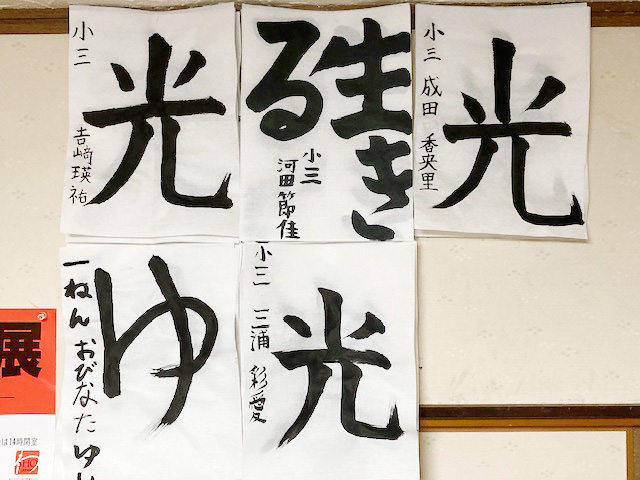 光
小三 吉﨑瑛祐
生き
る
小三
河田節佳
光
小三 成田 香央里
ゆ
一ねん おびなた ゆ
光
小三 三浦 彩愛
展
は14時閉室